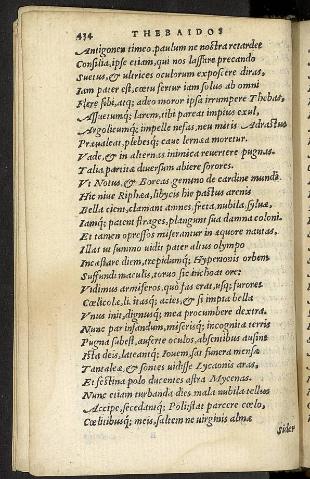 434 THEBAIDOS
Antigonen timeo. paulum ne nostra retardet
Consilia, ipse etiam, qui nos lassare precando
Suetus, & ultrices oculorum exposcere diras,
Iam pater est, coetu fertur iam solus ab omni
Flere sibi, atq; adeo moror ipsa irrumpere Thebas,
Assuetumq; larem, tibi pareat impius exul,
Argolicumq; impelle nefas, neu mitis Adrastus
Præualeat, plebesq; caue lernæa moretur.
Vade, & in alternas inimica reuertere pugnas.
Talia partitæ diuersum abiere sorores.
Vt Notus, & Boreas gemino de cardine mundi
Hic niue Riphæa, libycis hic pastus arenis
Bella cient, clamant amnes, freta, nubila, syluæ,
Iamq; patent strages, plangunt sua damna coloni.
Et tamen oppressos miserantur in æquore nautas.
Illas ut summo uidit pater altus olympo
Incestare diem, trepidumq; Hyperionis orbem
Suffundi maculis, toruo sic inchoat ore:
Vidimus armiferos, quò fas erat, usq; furores
Cœlicolæ, li- itasq; acies, & si impia bella
Vnus init, dignusq; mea procumbere dextra.
Nunc par infandum, miserisq; incognita terris
Pugna subest, auferte oculos, absentibus ausint
Ista deis, lateantq; Iouem, sat funera mensæ
Tantaleæ, & sontes uidisse Lycaonis aras,
Et festina polo ducentes astra Mycenas.
Nunc etiam turbanda dies mala nubila tellus
Accipe, secedantq; Poli: stat parcere cœlo,
Cœlitibusq; meis, saltem ne uirginis almæ
Sider